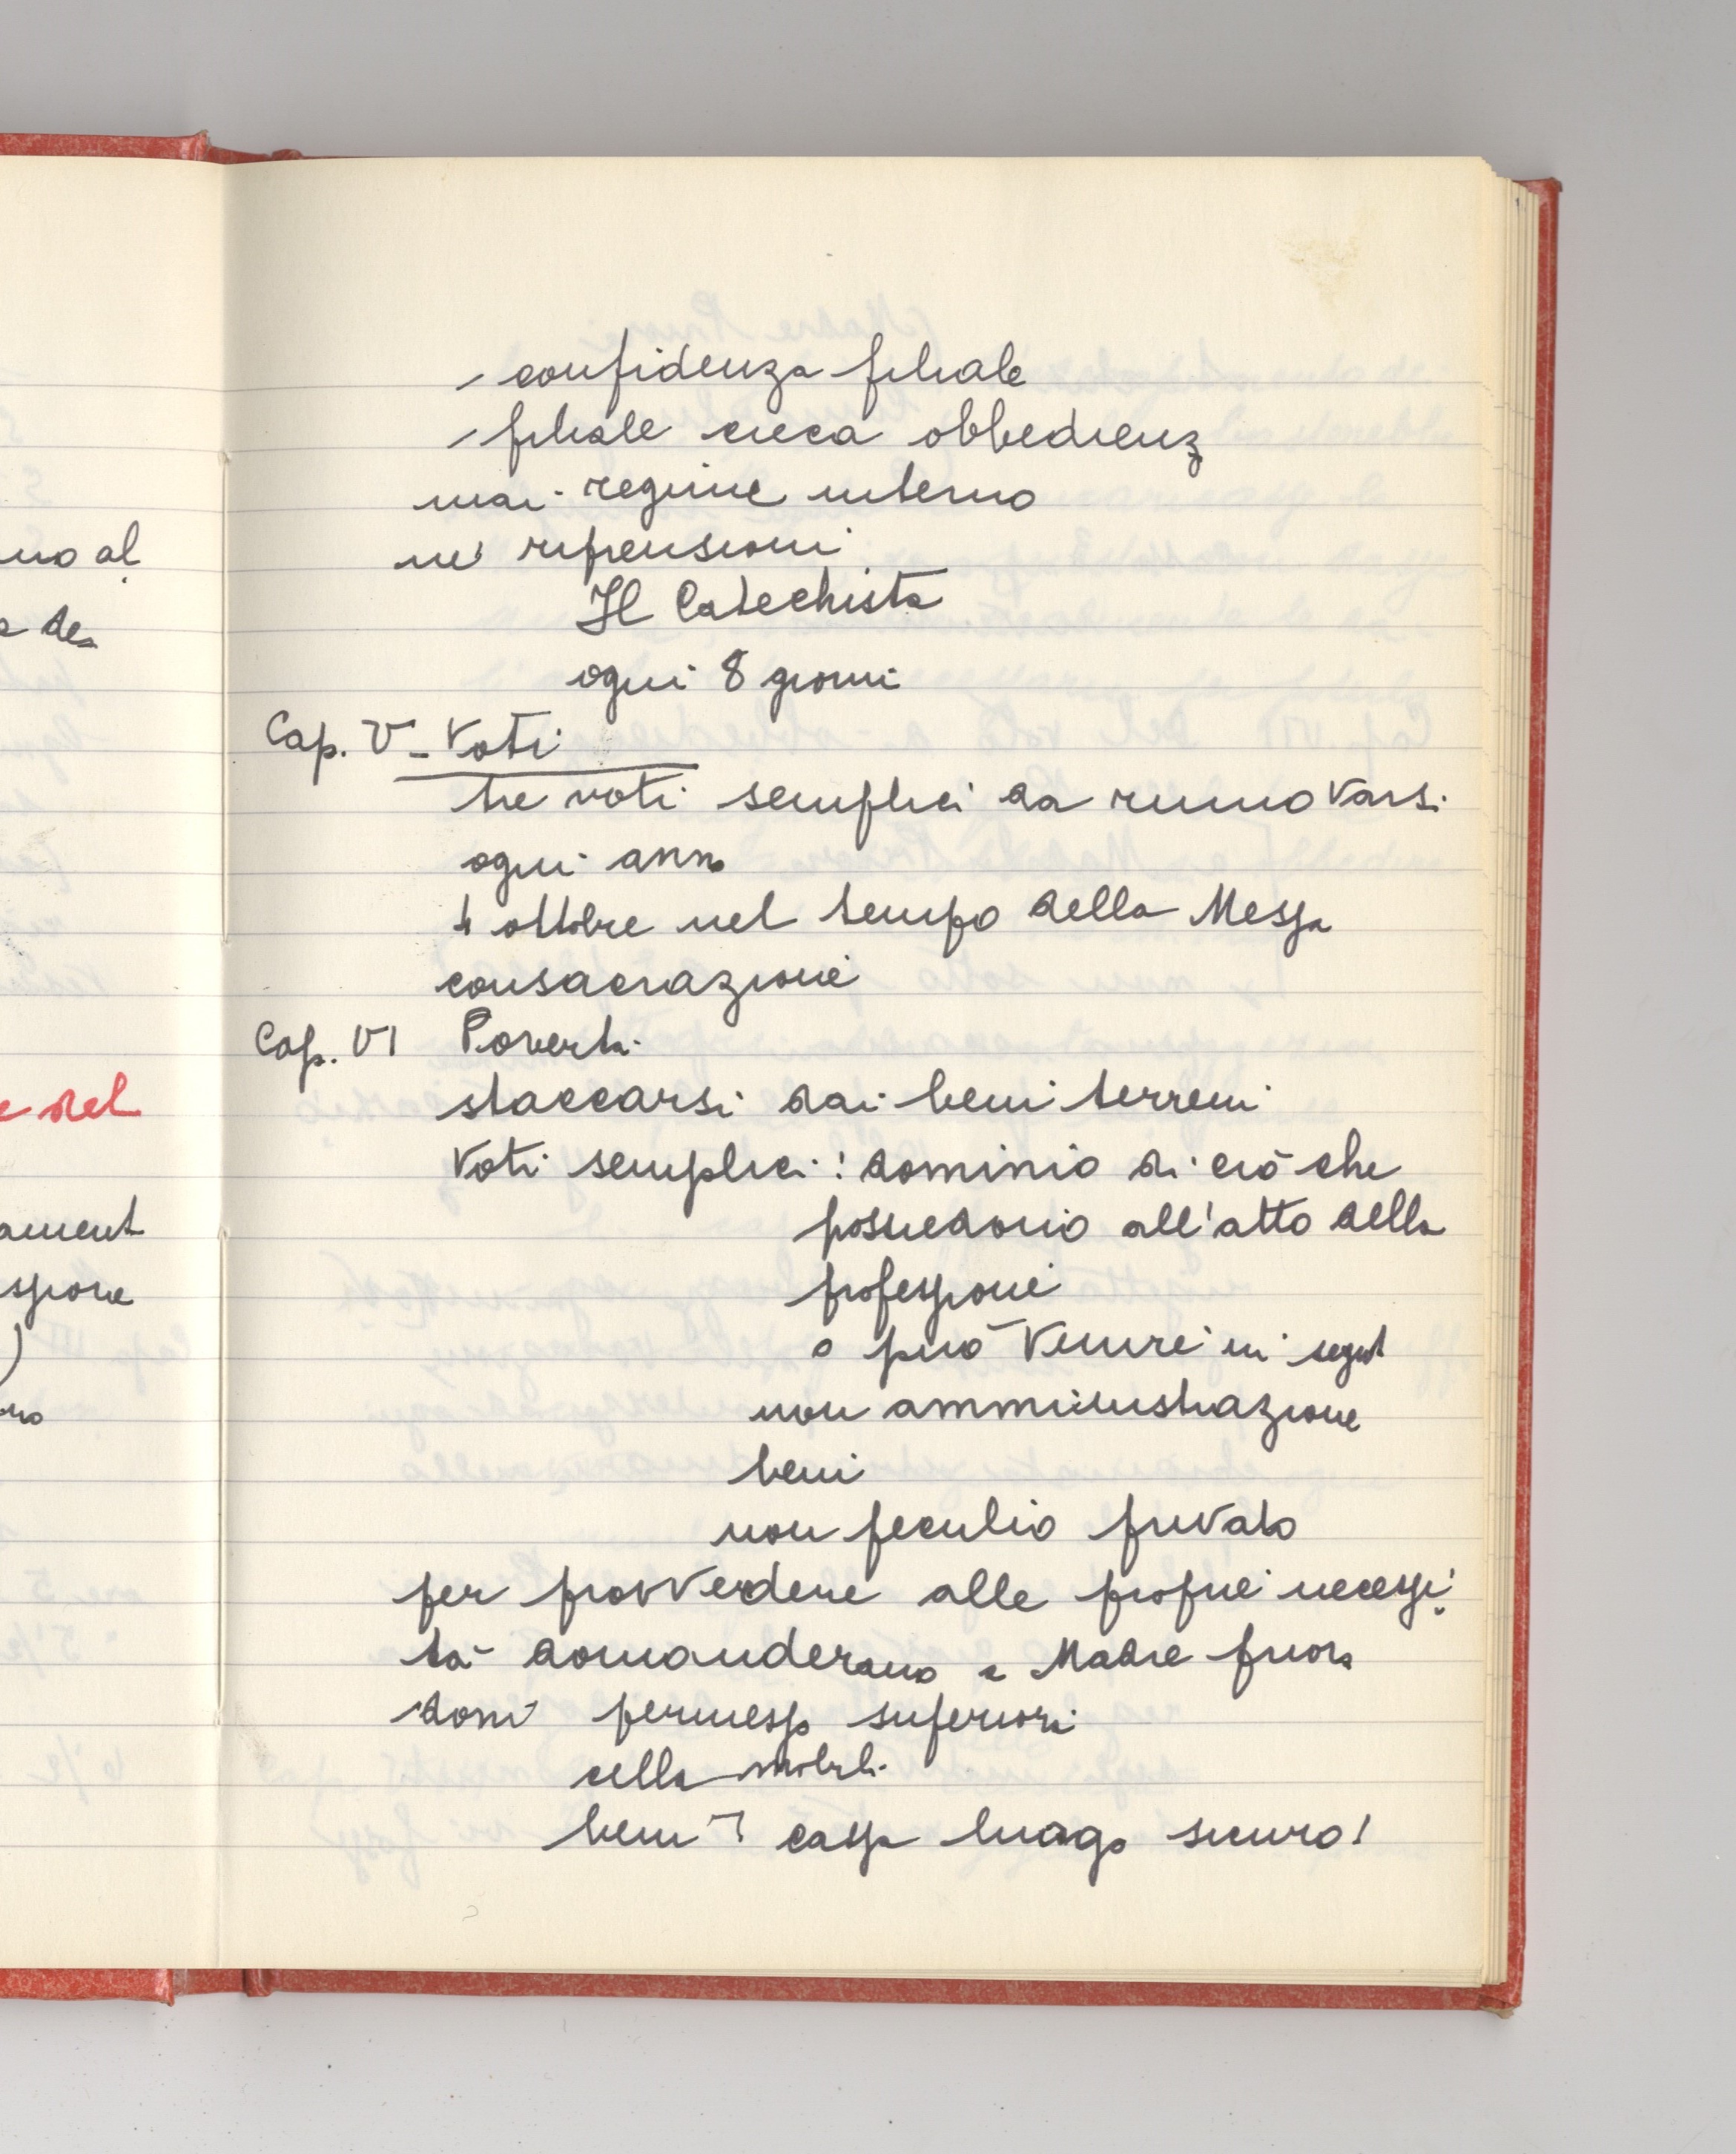 - confidenza filiale
- filiale cieca obbedienz
mai regime interno
nè riprensioni
Il Catechista
ogni 8 giorni
Cap. V - Voti
tre voti semplici da rinnovarsi
ogni anno
4 ottobre nel tempo della Messa
consacrazione
Cap. VI Povertà
staccarsi dai beni terreni
Voti semplici: dominio di ciò che
possiedono all'atto della
professione
o può venire in seguit
non amministrazione
beni
non peculio privato
per provvedere alle proprie necessi
tà domanderano a Madre priora
doni permesso superiori
cella mobili
beni cassa luogo sicuro!
no al
e del
ament